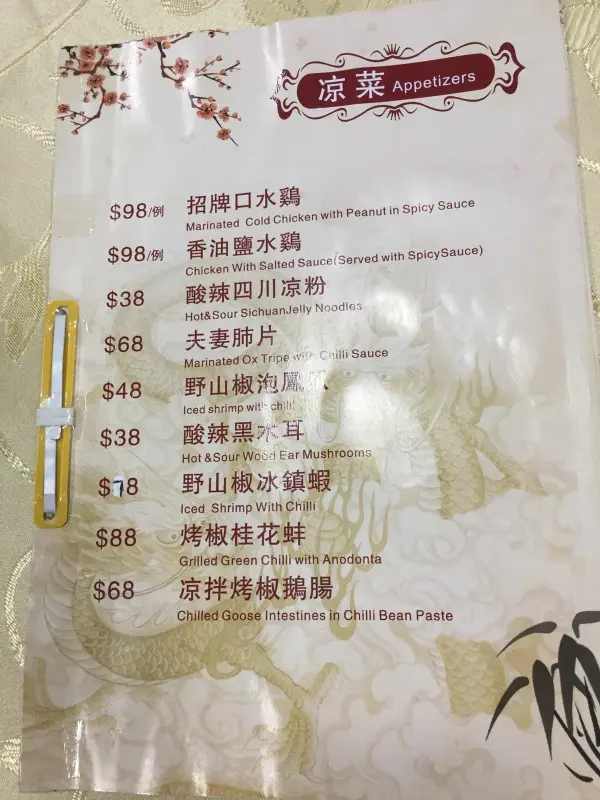 凉菜 Appetizers
$98/例 招牌口水鷄
Marinated Cold Chicken with Peanut in Spicy Sauce
$98/例 香油鹽水鷄
Chicken With Salted Sauce(Served with SpicySauce)
$38 酸辣四川凉粉
Hot&Sour SichuanJelly Noodles
$68 夫妻肺片
Marinated Ox Tripe with Chilli Sauce
$48 野山椒泡鳳爪
Iced shrimp with chilli
$38 酸辣黑木耳
Hot &Sour Wood Ear Mushrooms
$78 野山椒冰鎮蝦
Iced Shrimp With Chilli
$88 烤椒桂花蚌
Grilled Green Chilli with Anodonta
$68 凉拌烤椒鵝腸
Chilled Goose Intestines in Chilli Bean Paste